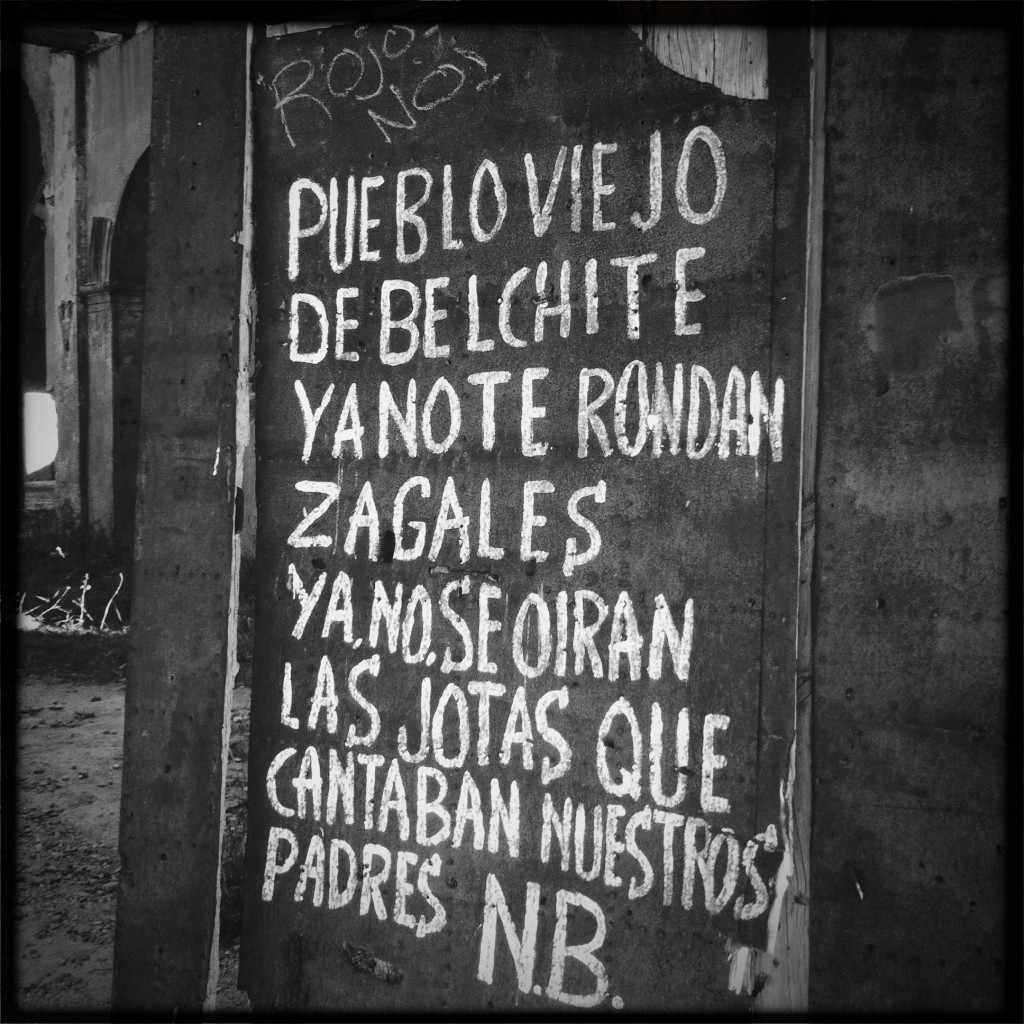 ROJO
NO!
PUEBLO VIEJO
DE BELCHITE
YA NO TE RONDAN
ZAGALES
YA.NO.SE OIRAN
LAS JOTAS QUE
CANTABAN NUESTROS
PADRES
N.B.